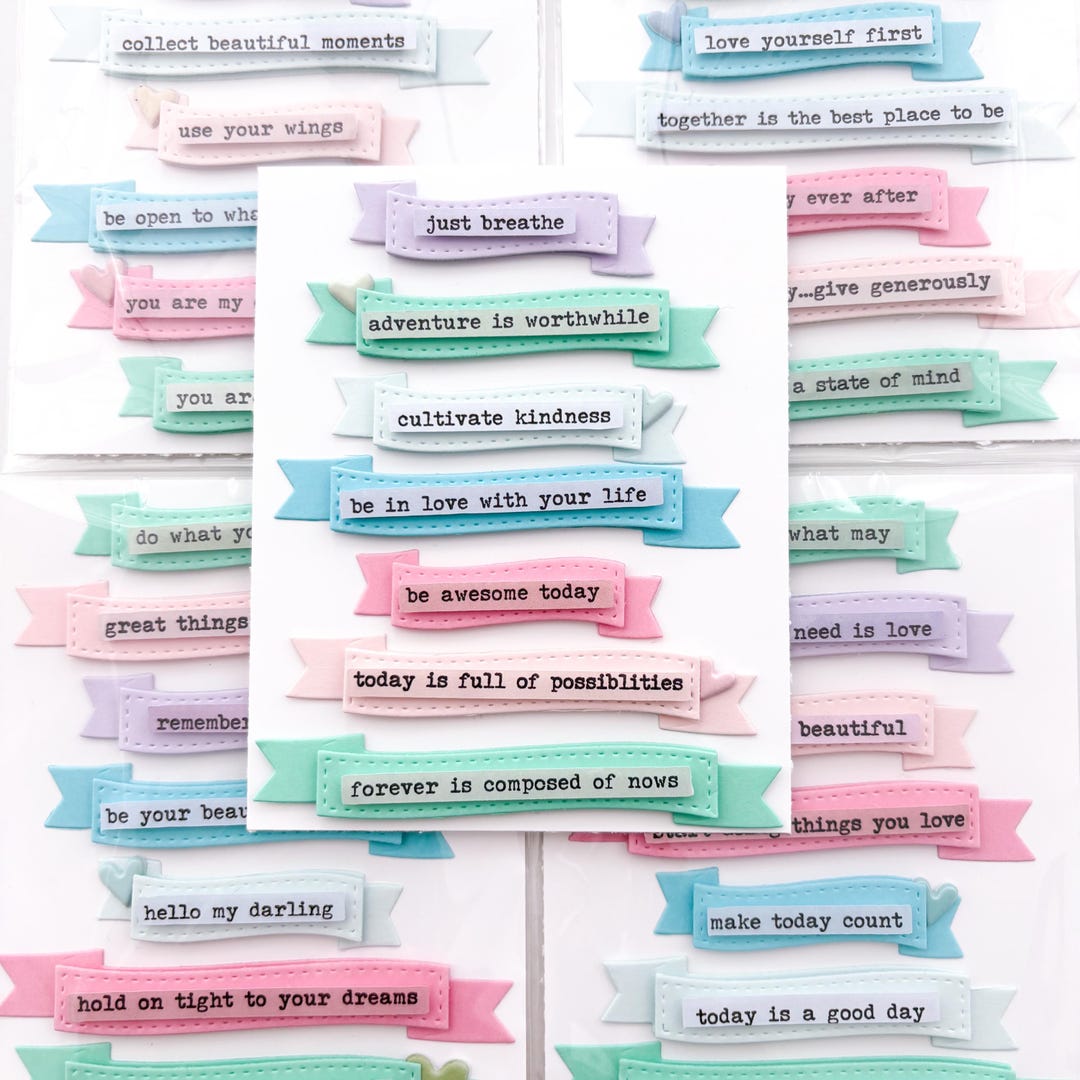 collect beautiful moments
use your wings
be open to wha
you are my
you ar
love yourself first
together is the best place to be
y ever after
y...give generously
a state of mind
just breathe
adventure is worthwhile
cultivate kindness
be in love with your life
be awesome today
today is full of possiblities
forever is composed of nows
do what yo
great things
remember
be your beau
hello my darling
hold on tight to your dreams
what may
need is love
beautiful
things you love
make today count
today is a good day